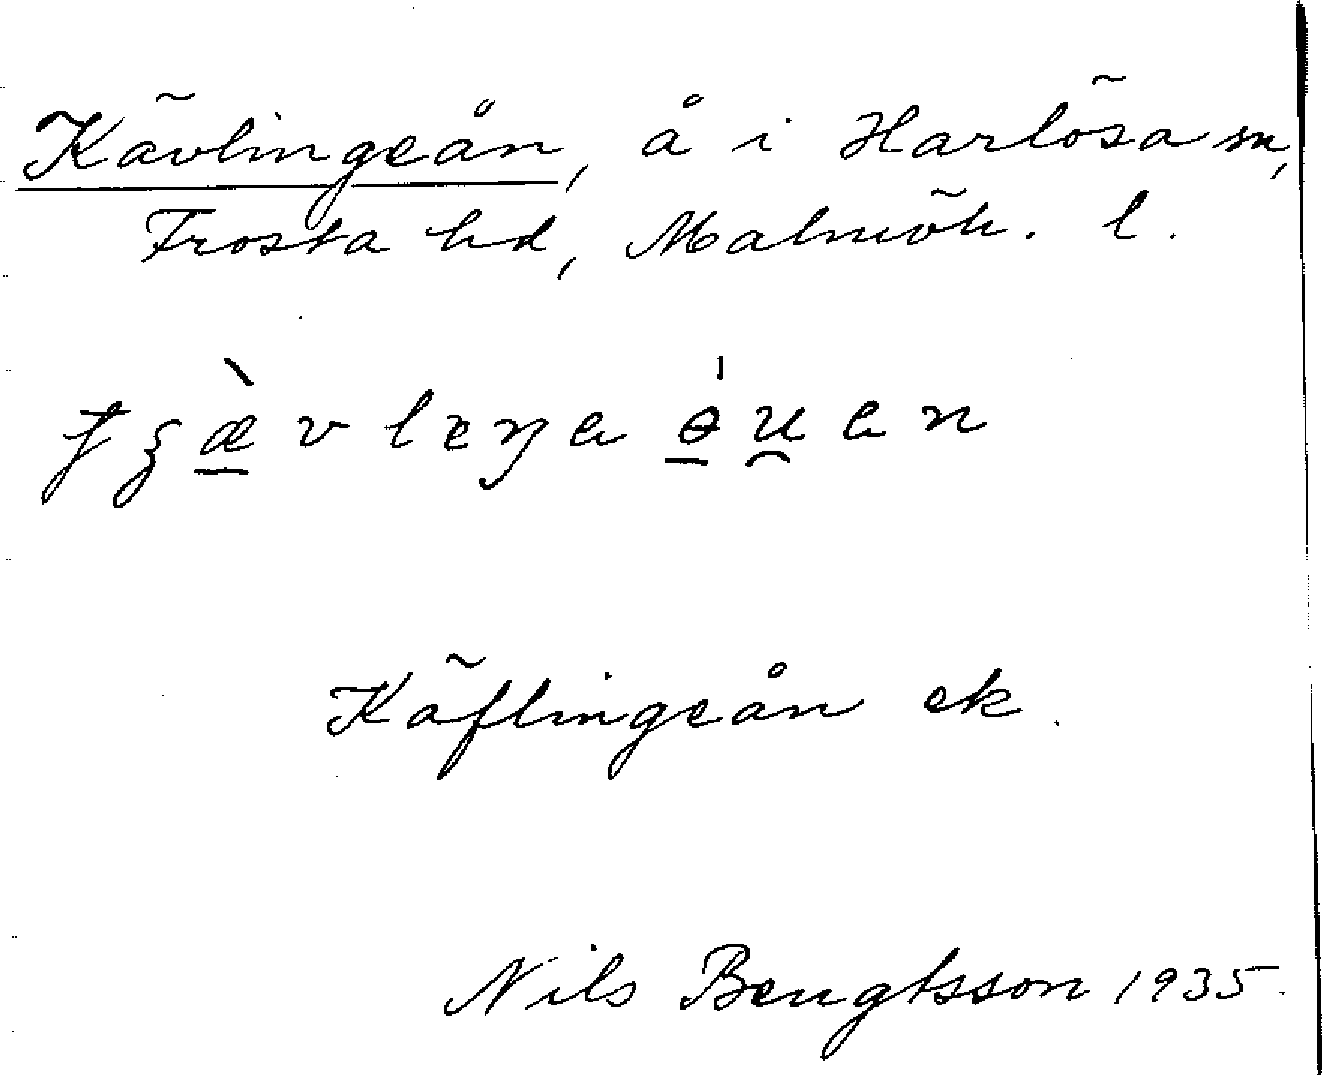 Kävlingeån, å i Harlösa sn,
Frosta hd, Malmöh. l.
Käflingeån ek.
Nils Bengtsson 1935.